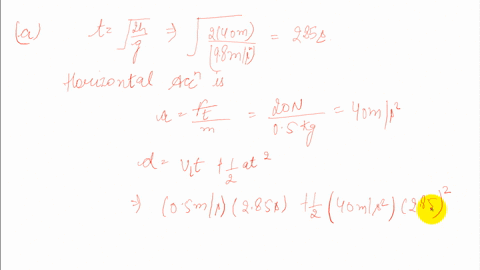 (a) t = √(2h/g) ⇒ √(2(40m)/(9.8m/s²)) = 2.85s
Horizontal Accⁿ is
a = Ft/m = 20N/0.5kg = 40m/s²
d = V₁t + 1/2 at²
⇒ (0.5m/s) (2.85s) + 1/2 (40m/s²) (2.85)²